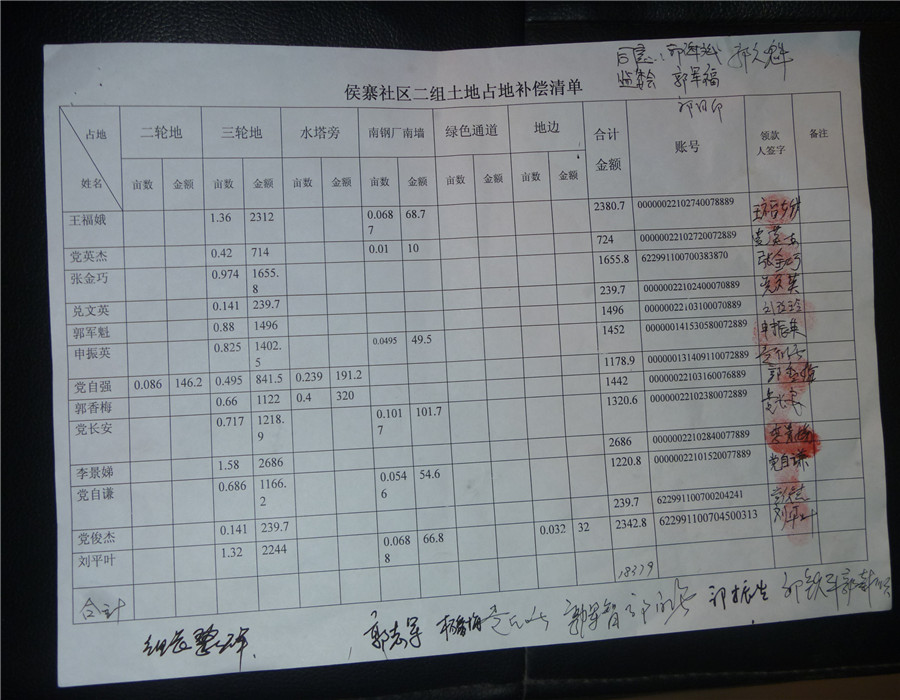 同意 郭海斌 郭久魁
监委会 郭军福
侯寨社区二组土地占地补偿清单
占地 姓名 二轮地 三轮地 水塔旁 南钢厂南墙 绿色通道 地边 合计金额 账号 领款人签字 备注
亩数 金额 亩数 金额 亩数 金额 亩数 金额 亩数 金额 亩数 金额
王福娥 1.36 2312 0.0687 68.7 2380.7 00000022102740078889
党英杰 0.42 714 0.01 10 724 00000022102720072889
张金巧 0.974 1655.8 1655.8 622991100700383870 张金巧
兑文英 0.141 239.7 239.7 00000022102400070889
郭军魁 0.88 1496 1496 00000022103100070889
申振英 0.825 1402.5 0.0495 49.5 1452 000000141530580072889
党自强 0.086 146.2 0.495 841.5 0.239 191.2 1178.9 000000131409110072889
郭香梅 0.66 1122 0.4 320 1442 00000022103160076889
党长安 0.717 1218.9 0.1017 101.7 1320.6 00000022102380072889
李景娣 1.58 2686 2686 00000022102840077889
党自谦 0.686 1166.2 0.0546 54.6 1220.8 00000022101520077889 党自谦
党俊杰 0.141 239.7 239.7 622991100700204241
刘平叶 1.32 2244 0.0688 66.8 0.032 32 2342.8 622991100704500313 刘平叶
合计 18379
组长 郭志军 郭军智 郭振生